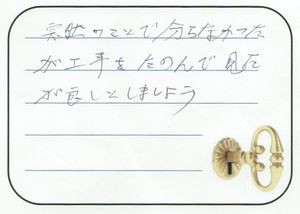 突然のことで分らなかった
が工事をたのんで見た
が良しとしましょう